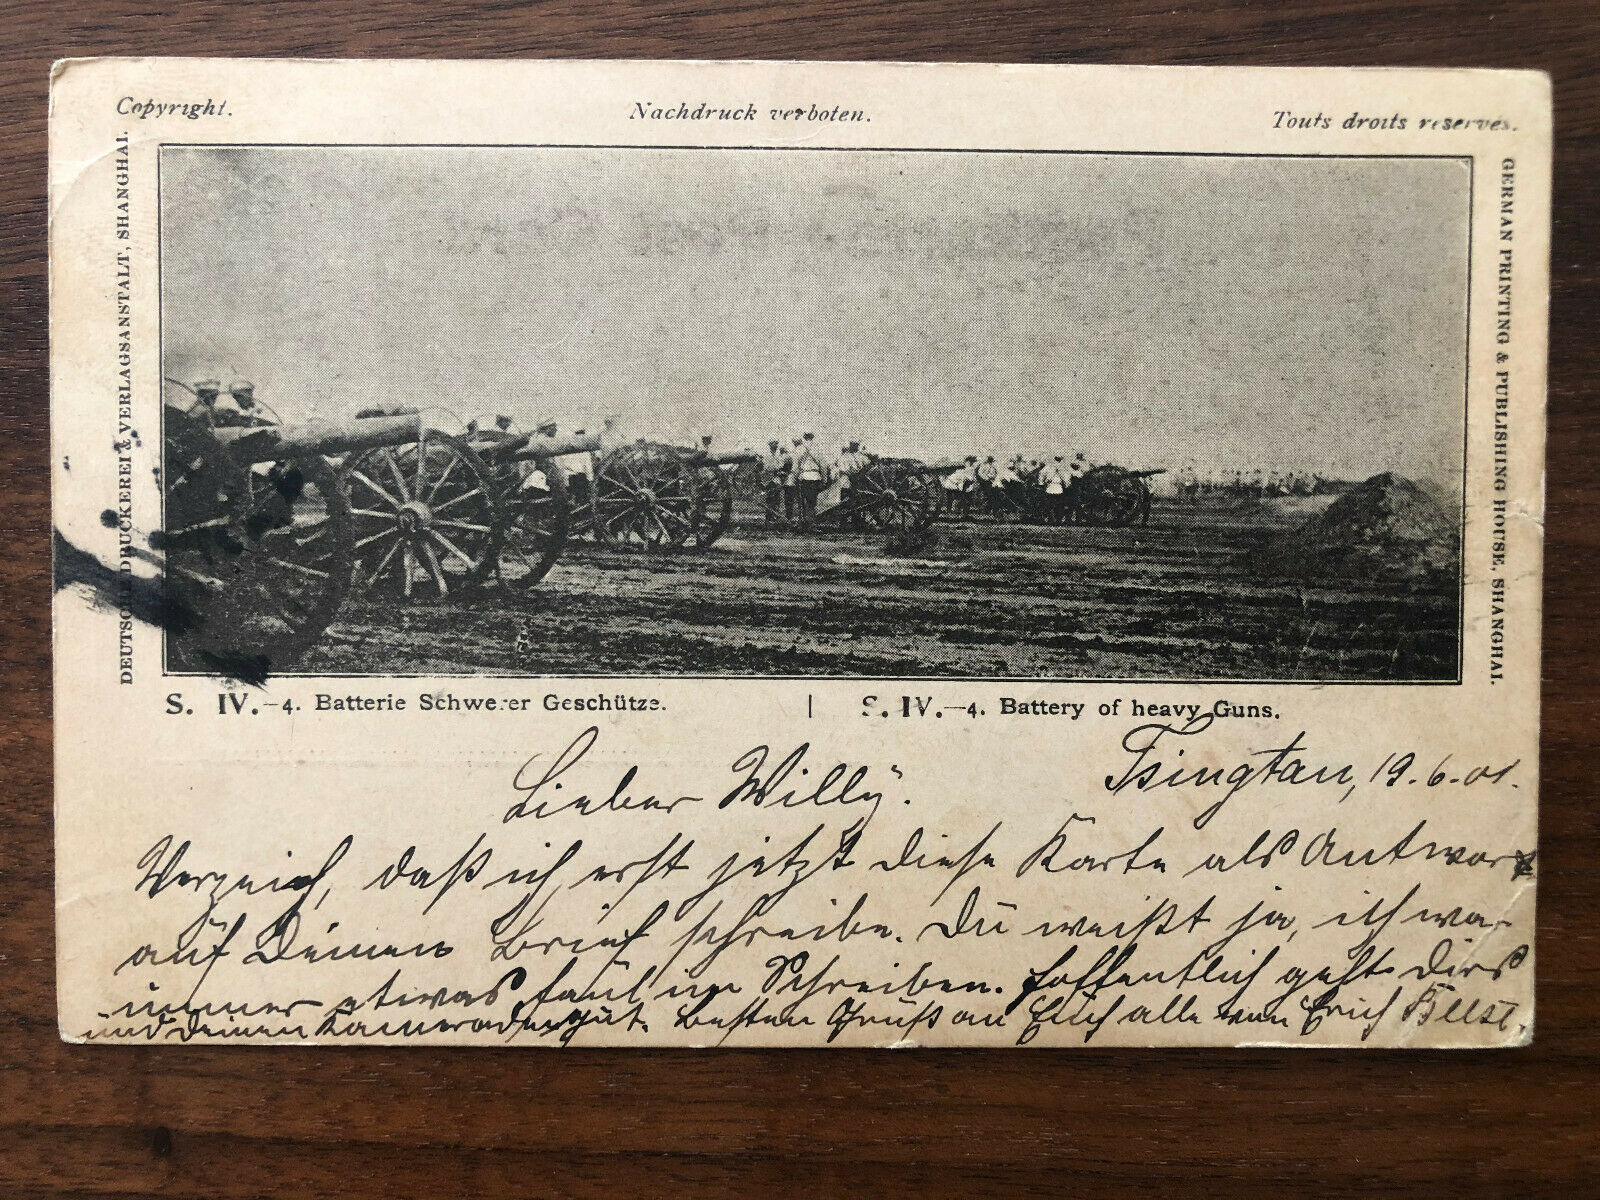 Copyright.
Nachdruck verboten.
Touts droits reservés.
DEUTSCHE DRUCKEREI & VERLAGSANSTALT, SHANGHAI.
GERMAN PRINTING & PUBLISHING HOUSE, SHANGHAI.
S. IV.-4. Batterie Schwerer Geschütze. | S. IV.-4. Battery of heavy Guns.
Tsingtau, 19.6.01.
Lieber Willy.
Verzeih, daß ich erst jetzt diese Karte als Antwort
auf Deinen Brief schreibe. Du weißt ja, ich war
immer etwas faul im Schreiben. Hoffentlich geht's Dir
und Deinen Kameraden gut. Besten Gruß an Euch alle von Erich